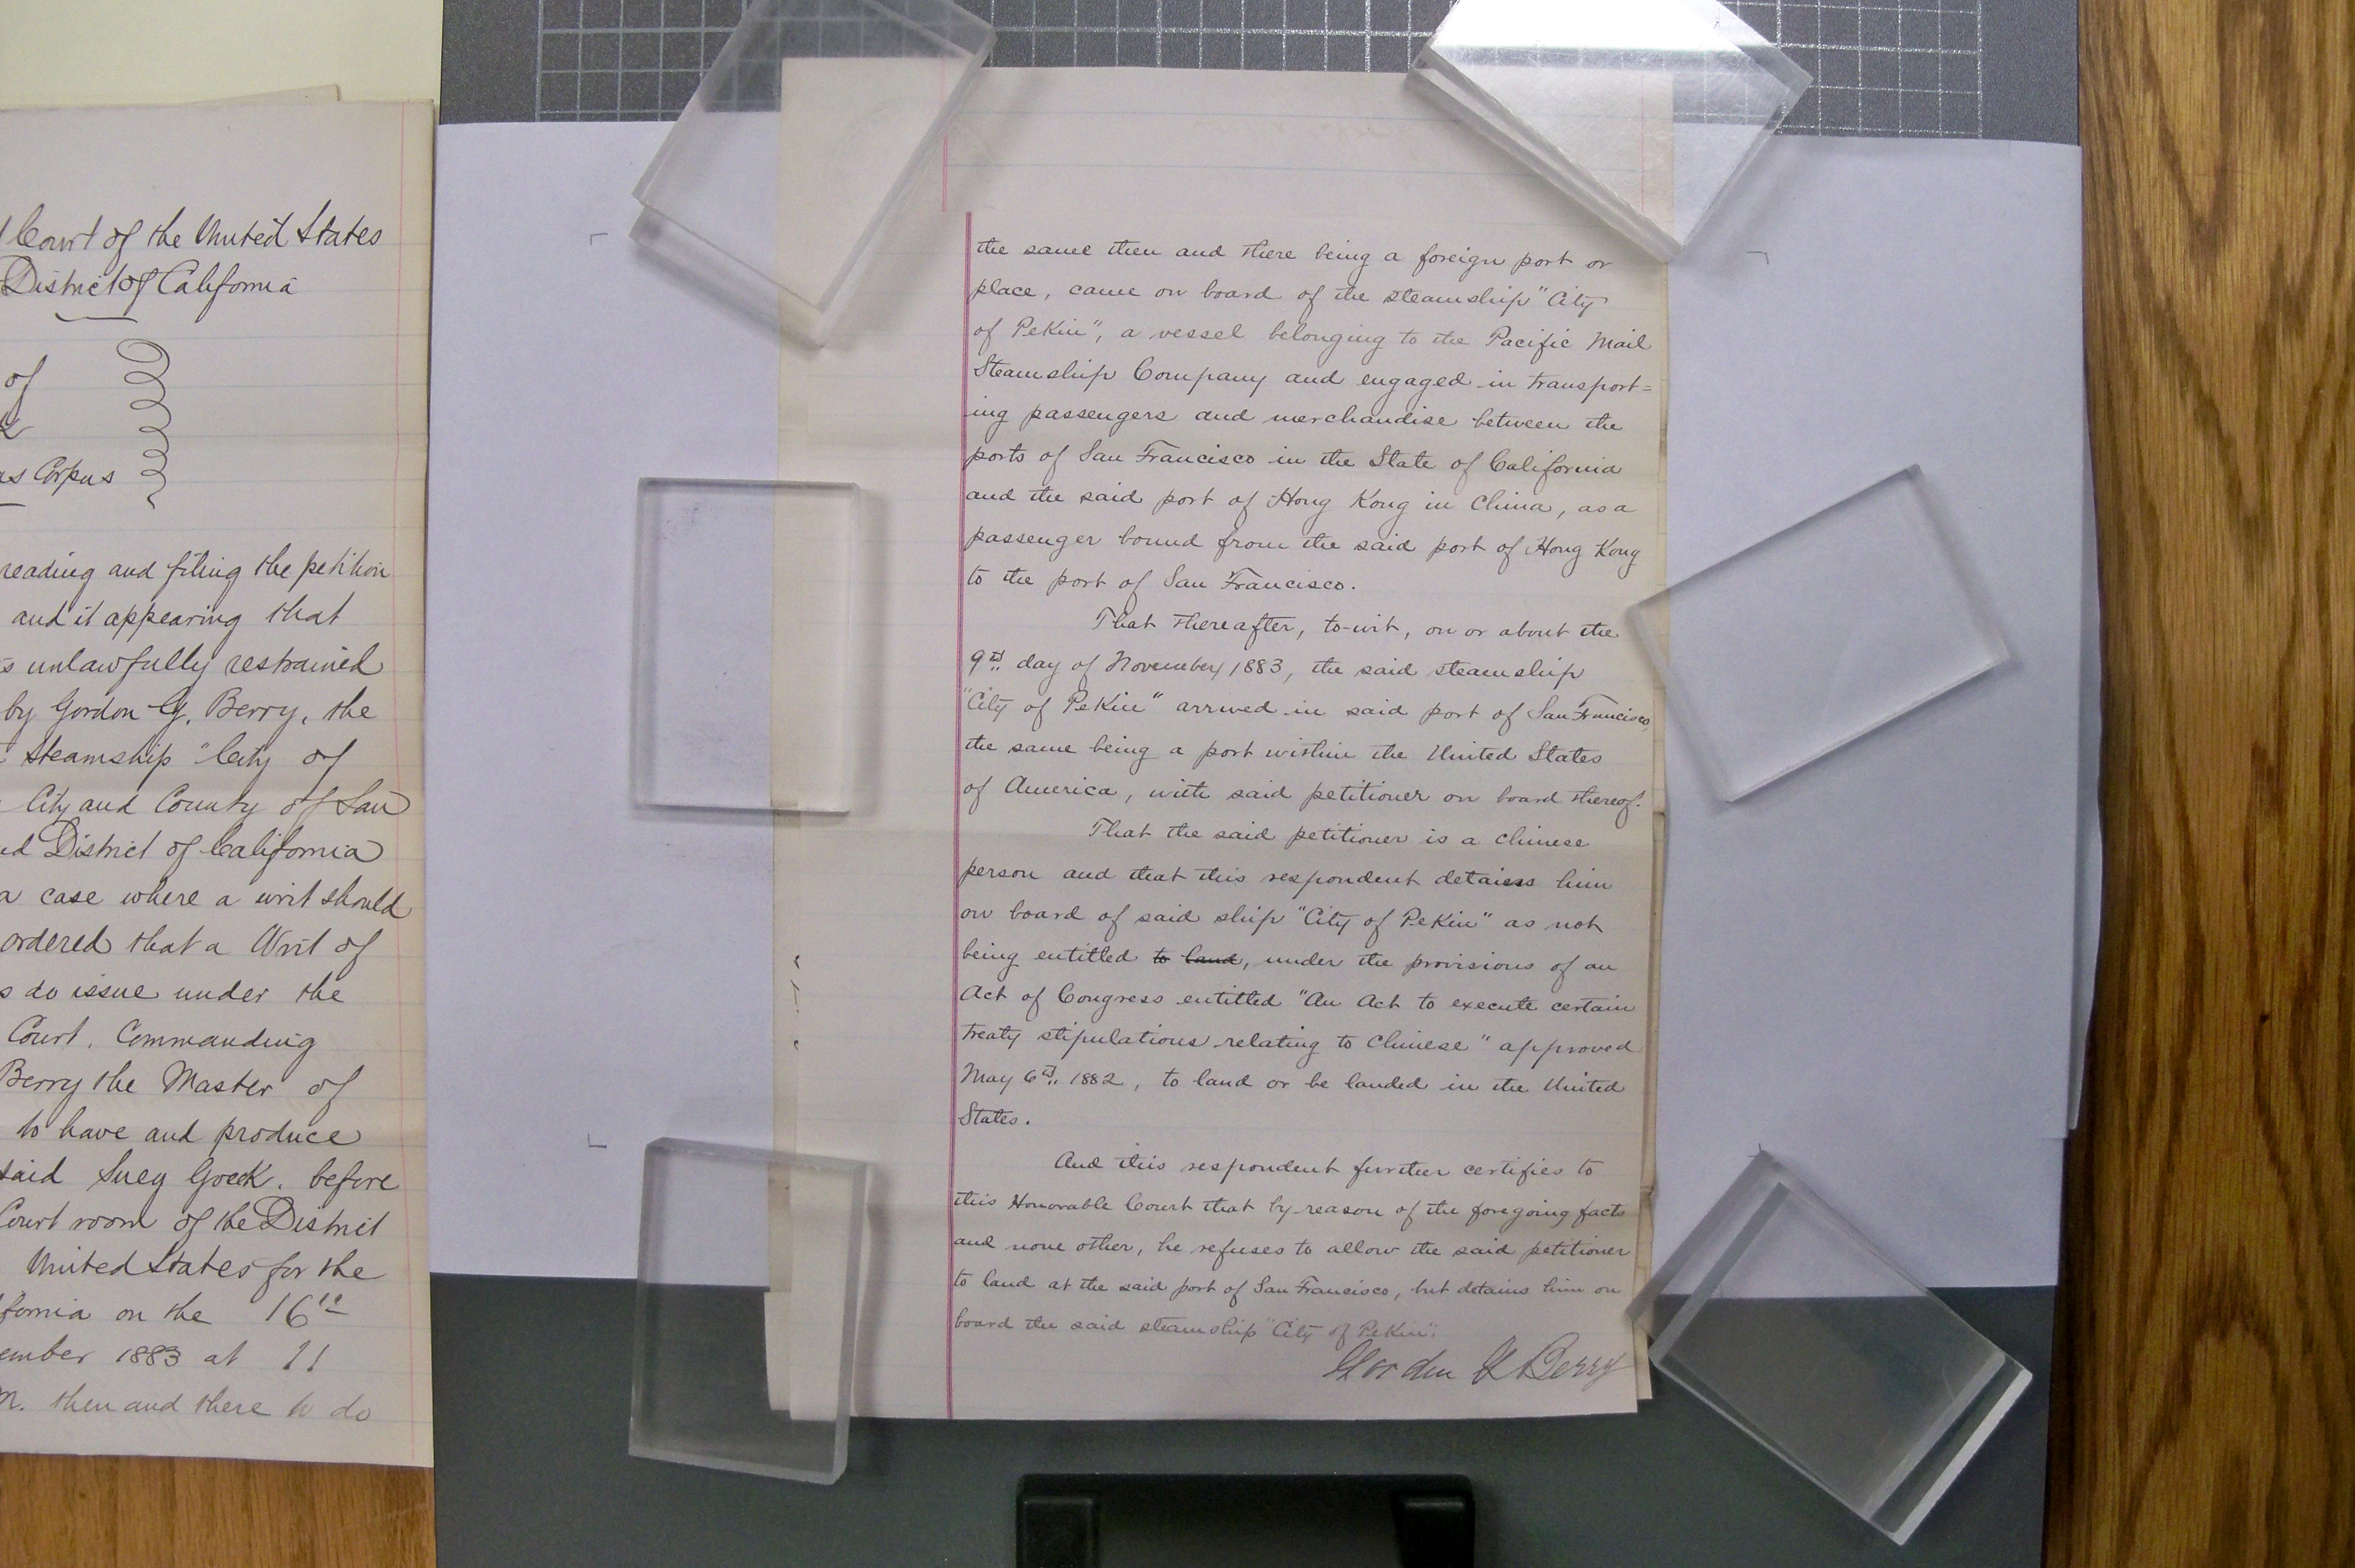 Court of the United States
District of California
of
Corpus
reading and filing the petition
and it appearing that
unlawfully restrained
by Gordon G. Berry, the
Steamship "City of
City and County of San
District of California
a case where a writ should
ordered that a Writ of
do issue under the
Court. Commanding
Berry the Master of
to have and produce
said Suey Gock. before
Court room of the District
United States for the
on the 16th
1883 at 11
M. then and there to do
the same then and there being a foreign port or
place, came on board of the steamship "City
of Pekin", a vessel belonging to the Pacific Mail
Steamship Company and engaged in transport=
ing passengers and merchandise between the
ports of San Francisco in the State of California
and the said port of Hong Kong in China, as a
passenger bound from the said port of Hong Kong
to the port of San Francisco.
That thereafter, to-wit, on or about the
9th day of November, 1883, the said steamship
"City of Pekin" arrived in said port of San Francisco,
the same being a port within the United States
of America, with said petitioner on board thereof.
That the said petitioner is a Chinese
person and that this respondent detains him
on board of said ship "City of Pekin" as not
being entitled to land, under the provisions of an
Act of Congress entitled "An Act to execute certain
treaty stipulations relating to Chinese" approved
May 6th 1882, to land or be landed in the United
States.
And this respondent further certifies to
this Honorable Court that by reason of the foregoing facts
and none other, he refuses to allow the said petitioner
to land at the said port of San Francisco, but detains him on
board the said steamship "City of Pekin".
Gordon G Berry